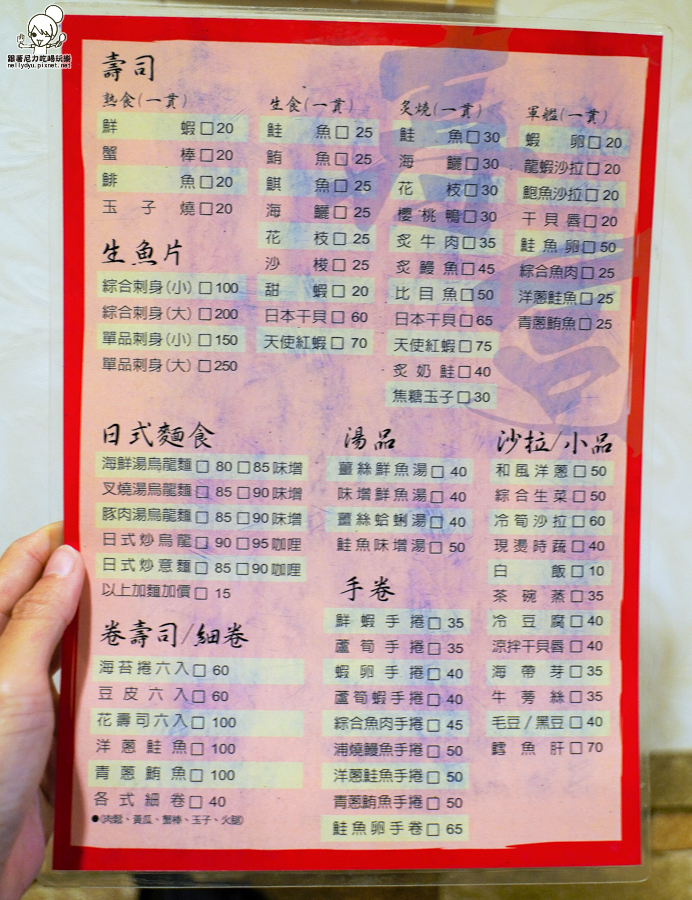 跟著尼力吃喝玩樂
nellydyu.pixnet.net
壽司
熟食(一貫)
鮮蝦□20
蟹棒□20
鯡魚□20
玉子燒□20
生食(一貫)
鮭魚□ 25
鮪魚□ 25
鯕魚□ 25
海鱺□ 25
花枝□ 25
沙梭□ 25
甜蝦□ 20
日本干貝□ 60
天使紅蝦□ 70
炙燒(一貫)
鮭魚□30
海鱺□30
花枝□30
櫻桃鴨□30
炙牛肉□35
炙鰻魚□45
比目魚□50
日本干貝□65
天使紅蝦□75
炙奶鮭□40
焦糖玉子□30
軍艦(一貫)
蝦卵□20
龍蝦沙拉□20
鮑魚沙拉□20
干貝唇□20
鮭魚卵□50
綜合魚肉□25
洋蔥鮭魚□25
青蔥鮪魚□25
生魚片
綜合刺身(小)□100
綜合刺身(大)□200
單品刺身(小)□150
單品刺身(大)□250
日式麵食
海鮮湯烏龍麵□ 80 □85味增
叉燒湯烏龍麵□ 85 □90味增
豚肉湯烏龍麵□ 85 □90味增
日式炒烏龍□ 90 □95咖哩
日式炒意麵□ 85 □90咖哩
以上加麵加價□ 15
卷壽司/細卷
海苔捲六入□ 60
豆皮六入□ 60
花壽司六入□ 100
洋蔥鮭魚□ 100
青蔥鮪魚□ 100
各式細卷□ 40
●(肉鬆、黃瓜、蟹棒、玉子、火腿)
湯品
薑絲鮮魚湯□ 40
味增鮮魚湯□ 40
薑絲蛤蜊湯□ 40
鮭魚味增湯□ 50
手卷
鮮蝦手捲□ 35
蘆筍手捲□ 35
蝦卵手捲□ 40
蘆筍蝦手捲□ 40
綜合魚肉手捲□ 45
浦燒鰻魚手捲□ 50
洋蔥鮭魚手捲□ 50
青蔥鮪魚手捲□ 50
鮭魚卵手卷□ 65
沙拉/小品
和風洋蔥□ 50
綜合生菜□ 50
冷筍沙拉□ 60
現燙時蔬□ 40
白飯□ 10
茶碗蒸□ 35
冷豆腐□ 40
涼拌干貝唇□ 40
海帶芽□ 35
牛蒡絲□ 35
毛豆/黑豆□ 40
鱈魚肝□ 70